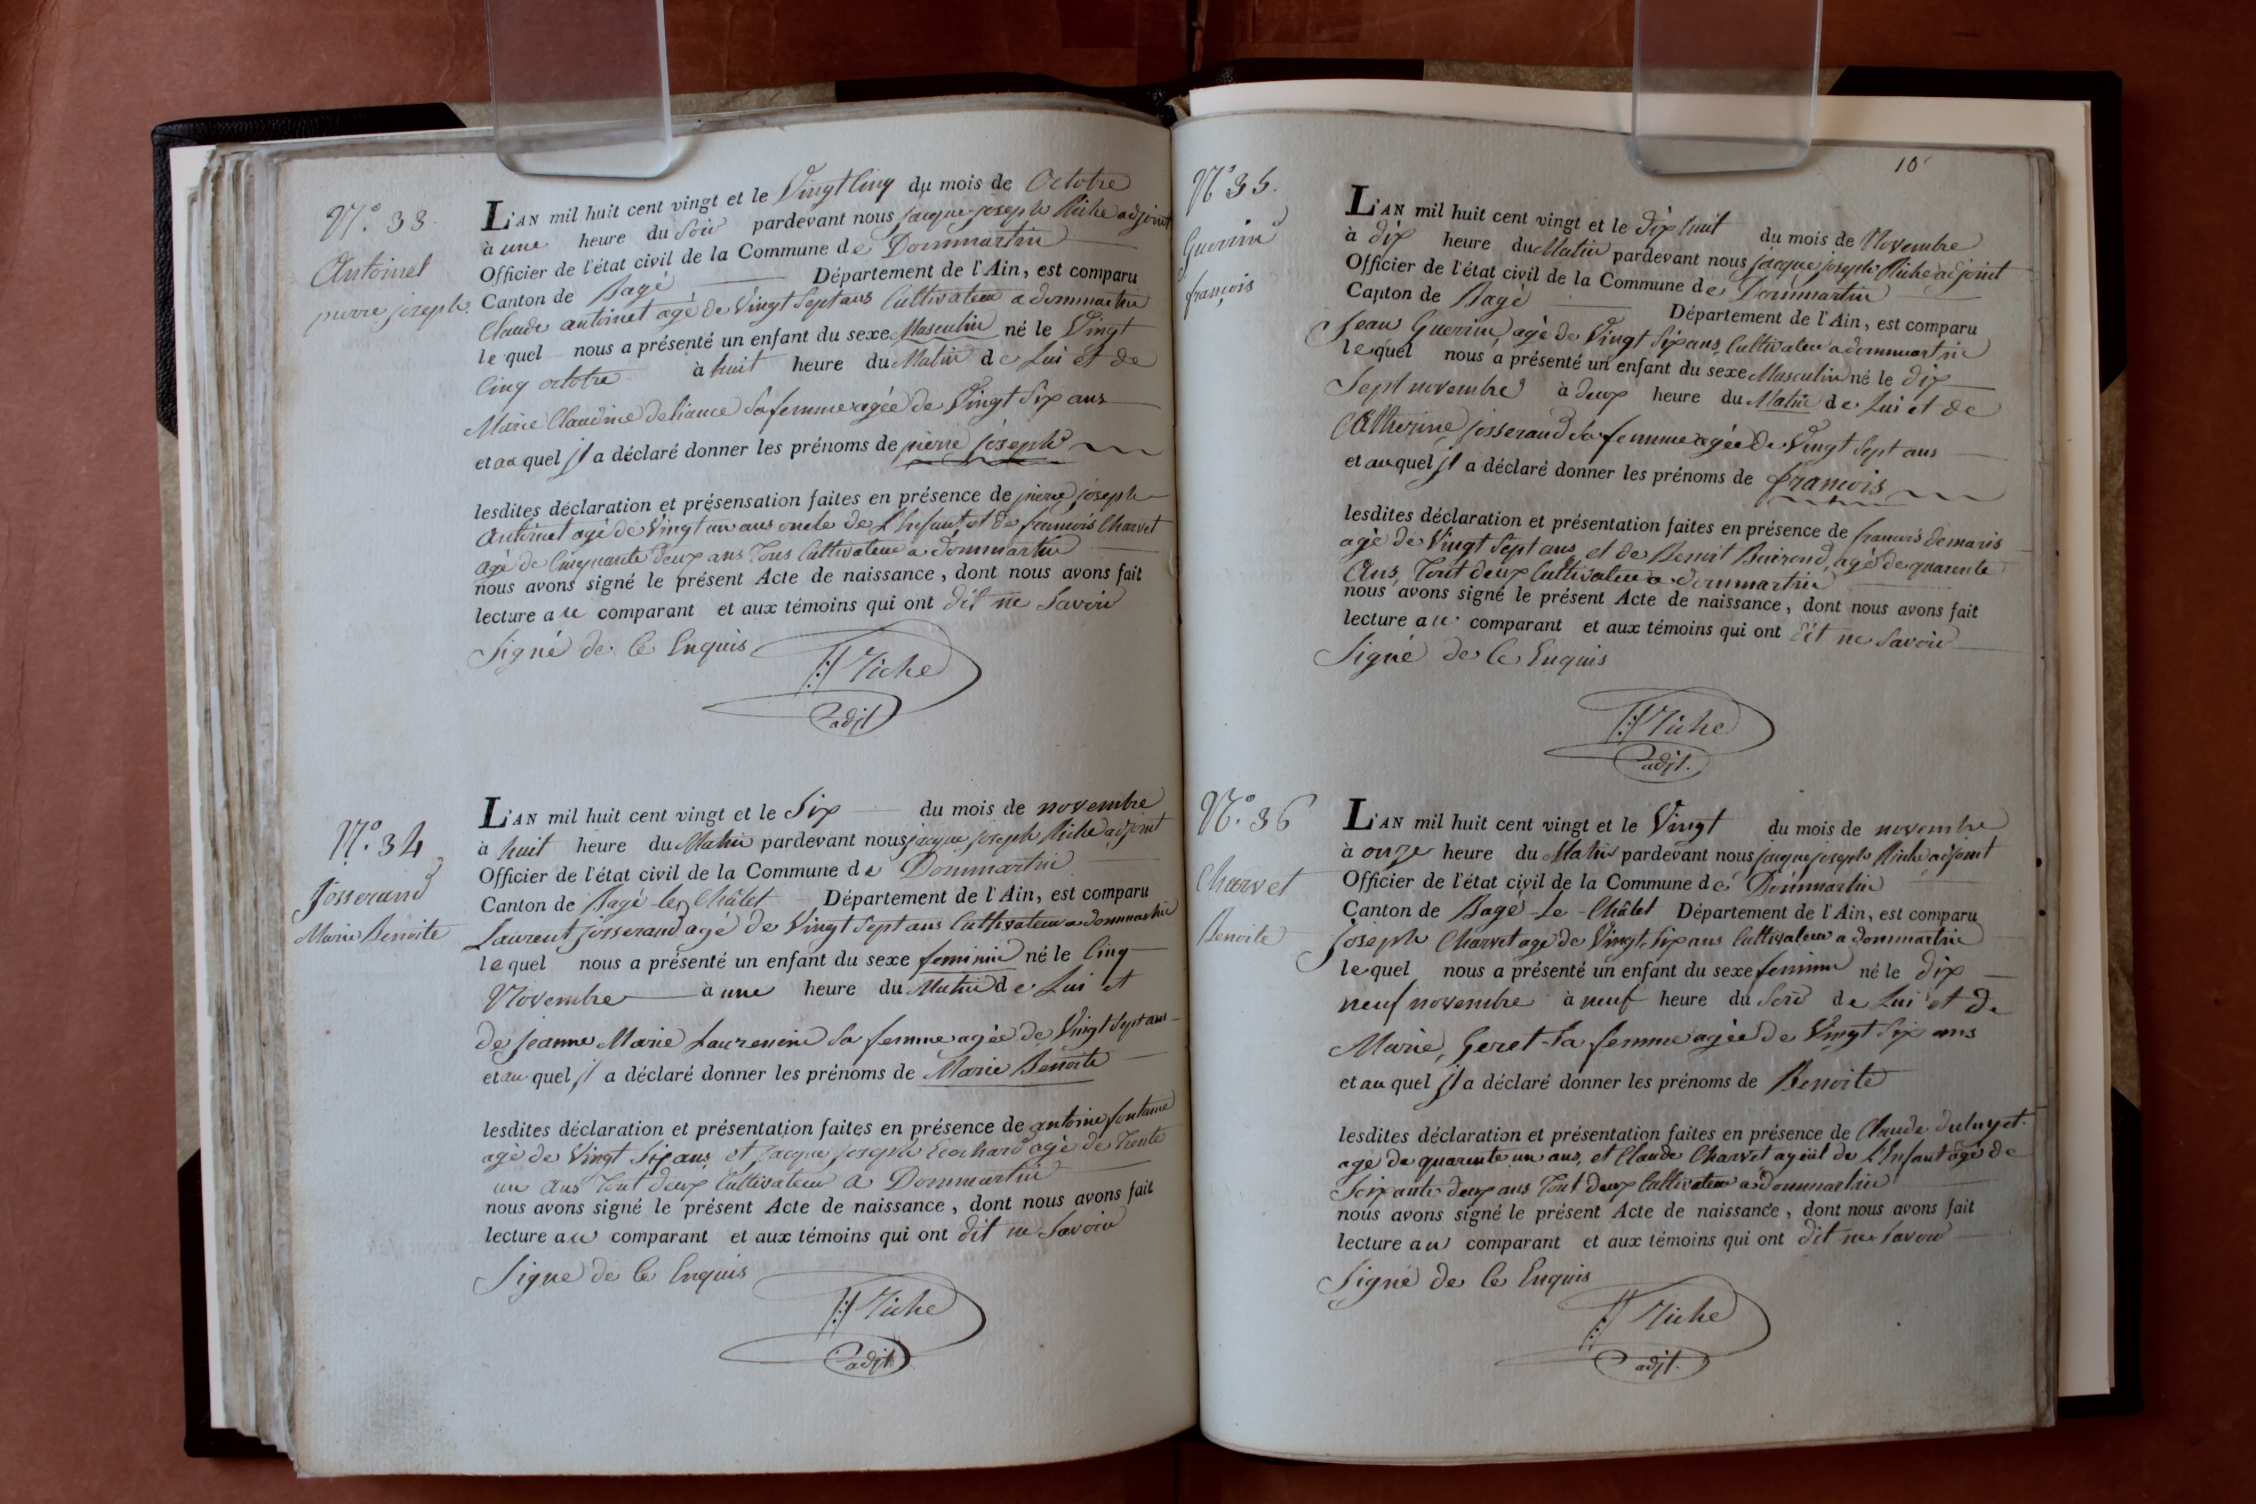 N.° 33.
Antoinet
pierre joseph.
L'AN mil huit cent vingt et le Vingt Cinq du mois de Octobre
à une heure du Soir pardevant nous jacque joseph Riche adjoint
Officier de l'état civil de la Commune de Dommartin
Canton de Bagé Département de l'Ain, est comparu
Claude antoinet agé de Vingt Sept ans Cultivateur a dommartin
lequel nous a présenté un enfant du sexe Masculin né le Vingt
Cinq octobre à huit heure du Matin de Lui et de
Marie Claudine deliance Sa femme agée de Vingt Six ans
et au quel il a déclaré donner les prénoms de pierre joseph
lesdites déclaration et présensation faites en présence de pierre joseph
Antoinet agé de Vingt un ans oncle de L'Enfant et de francois Charvet
agé de Cinquante deux ans Tous Cultivateur a dommartin
nous avons signé le présent Acte de naissance, dont nous avons fait
lecture au comparant et aux témoins qui ont dit ne Savoir
Signé de Ce Enquis
Riche
adjt
N.° 34
Josserand
Marie Benoite
L'AN mil huit cent vingt et le Six du mois de novembre
à huit heure du Matin pardevant nous jacque joseph Riche adjoint
Officier de l'état civil de la Commune de Dommartin
Canton de Bagé-le-Châtel Département de l'Ain, est comparu
Laurent josserand agé de Vingt Sept ans Cultivateur a dommartin
lequel nous a présenté un enfant du sexe feminin né le Cinq
Novembre à une heure du Matin de Lui et
de jeanne Marie Laurencin Sa femme agée de Vingt Sept ans
et au quel il a déclaré donner les prénoms de Marie Benoite
lesdites déclaration et présentation faites en présence de antoine fontaine
agé de Vingt Six ans, et jacque joseph Ecochard agé de Trente
un ans Tout deux Cultivateur a Dommartin
nous avons signé le présent Acte de naissance, dont nous avons fait
lecture au comparant et aux témoins qui ont dit ne Savoir
Signe de Ce Enquis
Riche
adjt
10
N.° 35.
Guerin
françois
L'AN mil huit cent vingt et le dix huit du mois de Novembre
à dix heure du Matin pardevant nous jacque joseph Riche adjoint
Officier de l'état civil de la Commune de Dommartin
Canton de Bagé Département de l'Ain, est comparu
Jean Guerin, agé de Vingt Six ans, Cultivateur a dommartin
lequel nous a présenté un enfant du sexe Masculin né le dix
Sept novembre à deux heure du Matin de Lui et de
Catherine josserand Sa femme agée de Vingt Sept ans
et auquel il a déclaré donner les prénoms de françois
lesdites déclaration et présentation faites en présence de francois demaris
agé de Vingt Sept ans, et de Benoit, agé de quarente
Ans, Tout deux Cultivateur a dommartin
nous avons signé le présent Acte de naissance, dont nous avons fait
lecture au comparant et aux témoins qui ont dit ne Savoir
Signé de Ce Enquis
Riche
adjt.
N.° 36
Charvet
Benoite
L'AN mil huit cent vingt et le Vingt du mois de novembre
à onze heure du Matin pardevant nous jacque joseph Riche adjoint
Officier de l'état civil de la Commune de Dommartin
Canton de Bagé-Le-Châtel Département de l'Ain, est comparu
joseph Charvet agé de Vingt Six ans Cultivateur a dommartin
lequel nous a présenté un enfant du sexe feminin né le dix
neuf novembre à neuf heure du Soir de Lui et de
Marie, Geret Sa femme agée de Vingt Six ans
et au quel il a déclaré donner les prénoms de Benoite
lesdites déclaration et présentation faites en présence de Claude
agé de quarente un ans, et Claude Charvet ayeül de L'Enfant agé de
Soixante deux ans Tout deux Cultivateur a dommartin
nous avons signé le présent Acte de naissance, dont nous avons fait
lecture au comparant et aux témoins qui ont dit ne Savoir
Signé de Ce Enquis
Riche
adjt.